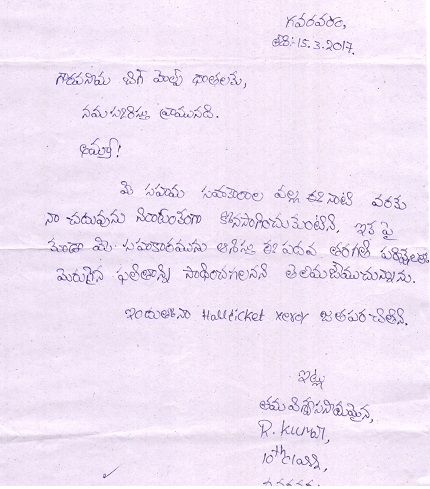 గవరవరం,
తేది:- 15.3.2017.
గౌరవనీయ బిగ్ హెల్ప్ దాతలకు,
నమస్కరిస్తూ వ్రాయునది.
అమ్మా!
మీ సహాయ సహకారాల వల్ల ఈ నాటి వరకు
నా చదువును నిరాటంకంగా కొనసాగించుచుంటిని, ఇక పై
కూడా మీ సహకారమును ఆశిస్తూ ఈ పదవ తరగతి
మెరుగైన ఫలితాన్ని సాధించగలనని తెలియజేయుచున్నాను.
ఇందుతో నా Hallticket xerox జతపరచితిని.
ఇట్లు
తమ విశ్వాసనీయమైన,
R. Kumar,
10th class,